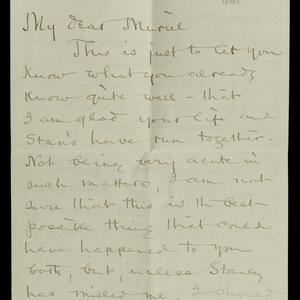 My dear Muriel
This is just to let you
Know what you already
Know quite well - that
I am glad your life and
Stan's have run together.
Not being very acute in
such matters, I am not
sure that this is the best
possible thing that could
have happened to you
both, but, unless Stanley
has misled me, I should